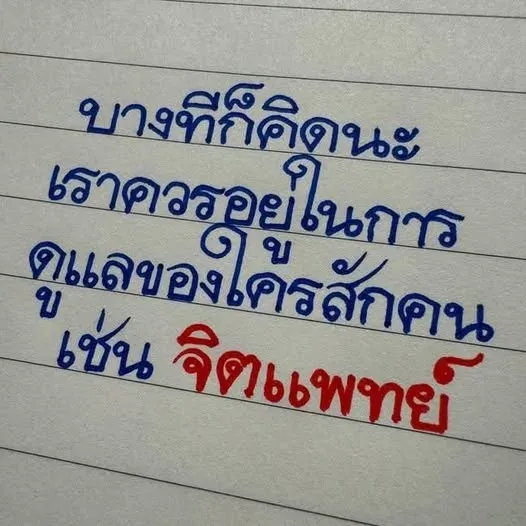 บางทีก็คิดนะ
เราควรอยู่ในการ
ดูแลของใครสักคน
เช่น จิตแพทย์